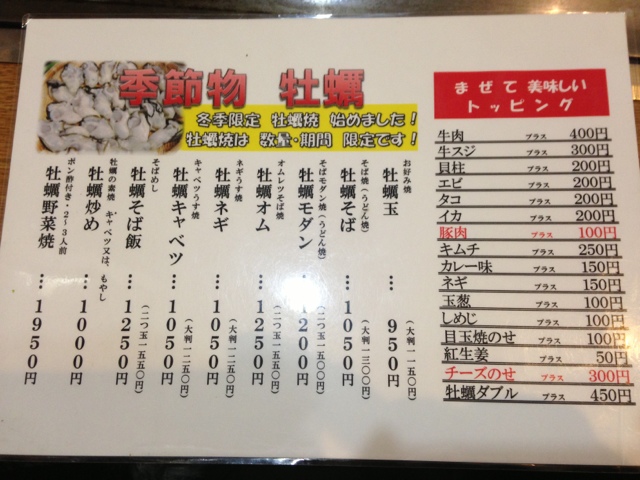 季節物 牡蠣
冬季限定 牡蠣焼 始めました!
牡蠣焼は 数量・期間 限定です!
お好み焼
牡蠣玉 … 950円
(大判一一五〇円)
そば焼(うどん焼)
牡蠣そば … 1050円
(大判一三〇〇円)
そばモダン焼(うどん焼)
牡蠣モダン … 1200円
(二つ玉一五〇〇円)
オムレツそば焼
牡蠣オム … 1250円
(二つ玉一五五〇円)
ネギうす焼
牡蠣ネギ … 1050円
(大判一二五〇円)
キャベツうす焼
牡蠣キャベツ … 1050円
(大判一二五〇円)
そばめし
牡蠣そば飯 … 1250円
(二つ玉一五五〇円)
牡蠣の素焼 キャベツ又は、もやし
牡蠣炒め … 1000円
ポン酢付き・2~3人前
牡蠣野菜焼 … 1950円
まぜて 美味しい
トッピング
牛肉 プラス 400円
牛スジ プラス 300円
貝柱 プラス 200円
エビ プラス 200円
タコ プラス 200円
イカ プラス 200円
豚肉 プラス 100円
キムチ プラス 250円
カレー味 プラス 150円
ネギ プラス 150円
玉葱 プラス 100円
しめじ プラス 100円
目玉焼のせ プラス 100円
紅生姜 プラス 50円
チーズのせ プラス 300円
牡蠣ダブル プラス 450円